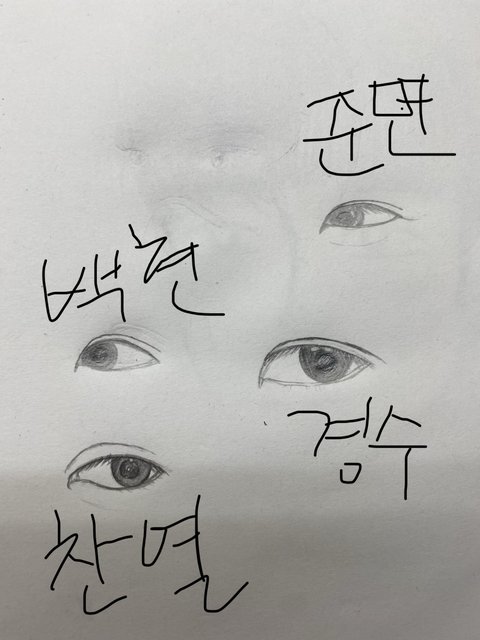 준면
백현
경수
찬열